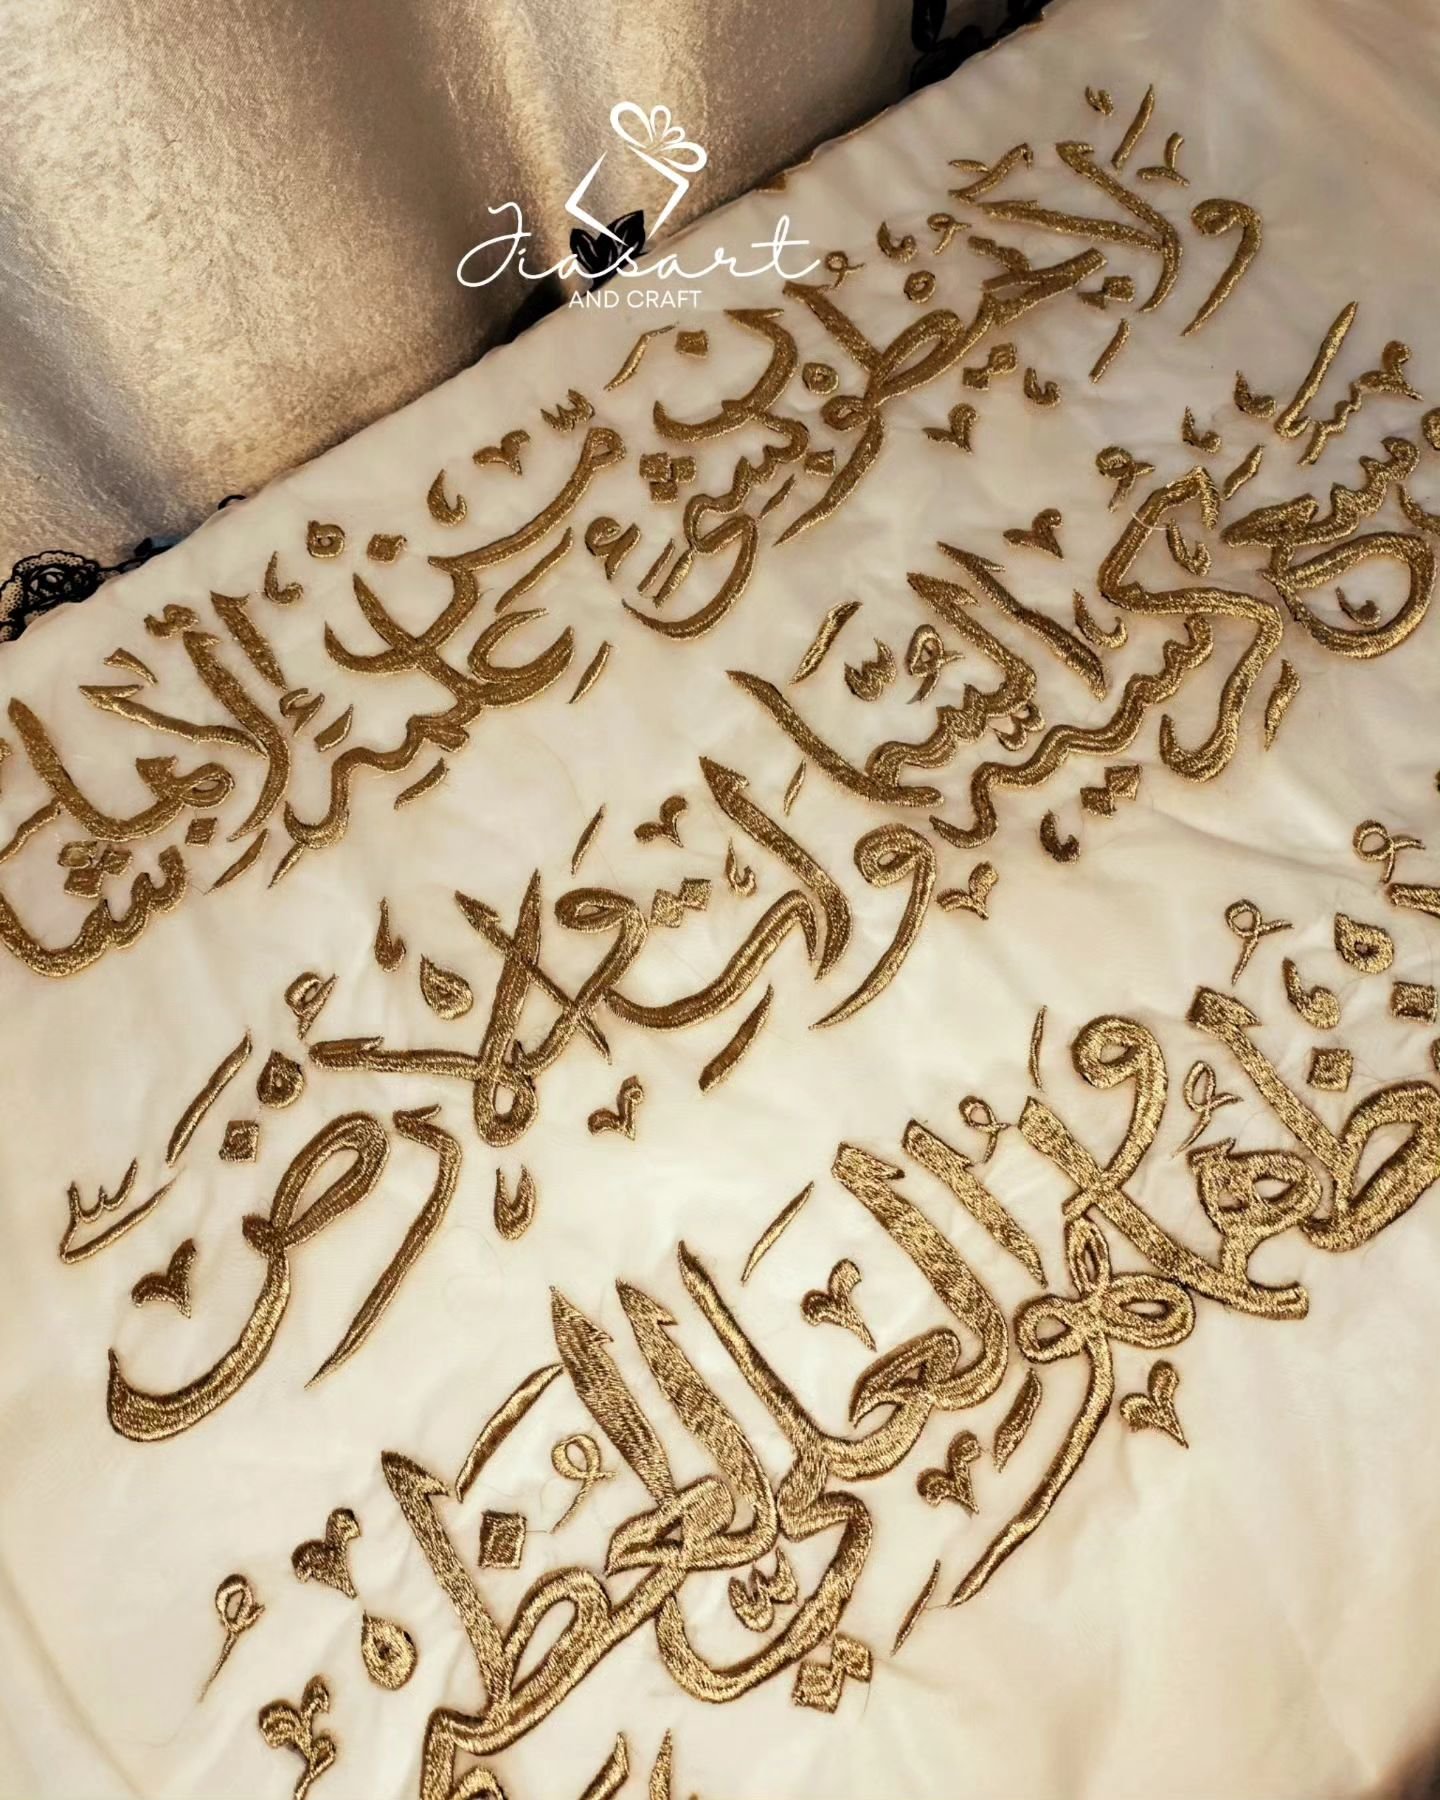 Jiasart
AND CRAFT
وَلَا يُحِيطُونَ بِشَيْءٍ مِّنْ عِلْمِهِ إِلَّا بِمَا شَا
وَسِعَ كُرْسِيُّهُ السَّمَٰوَاتِ وَالْأَرْضَ
ظُهُمَا وَهُوَ الْعَلِيُّ الْعَظِيمُ